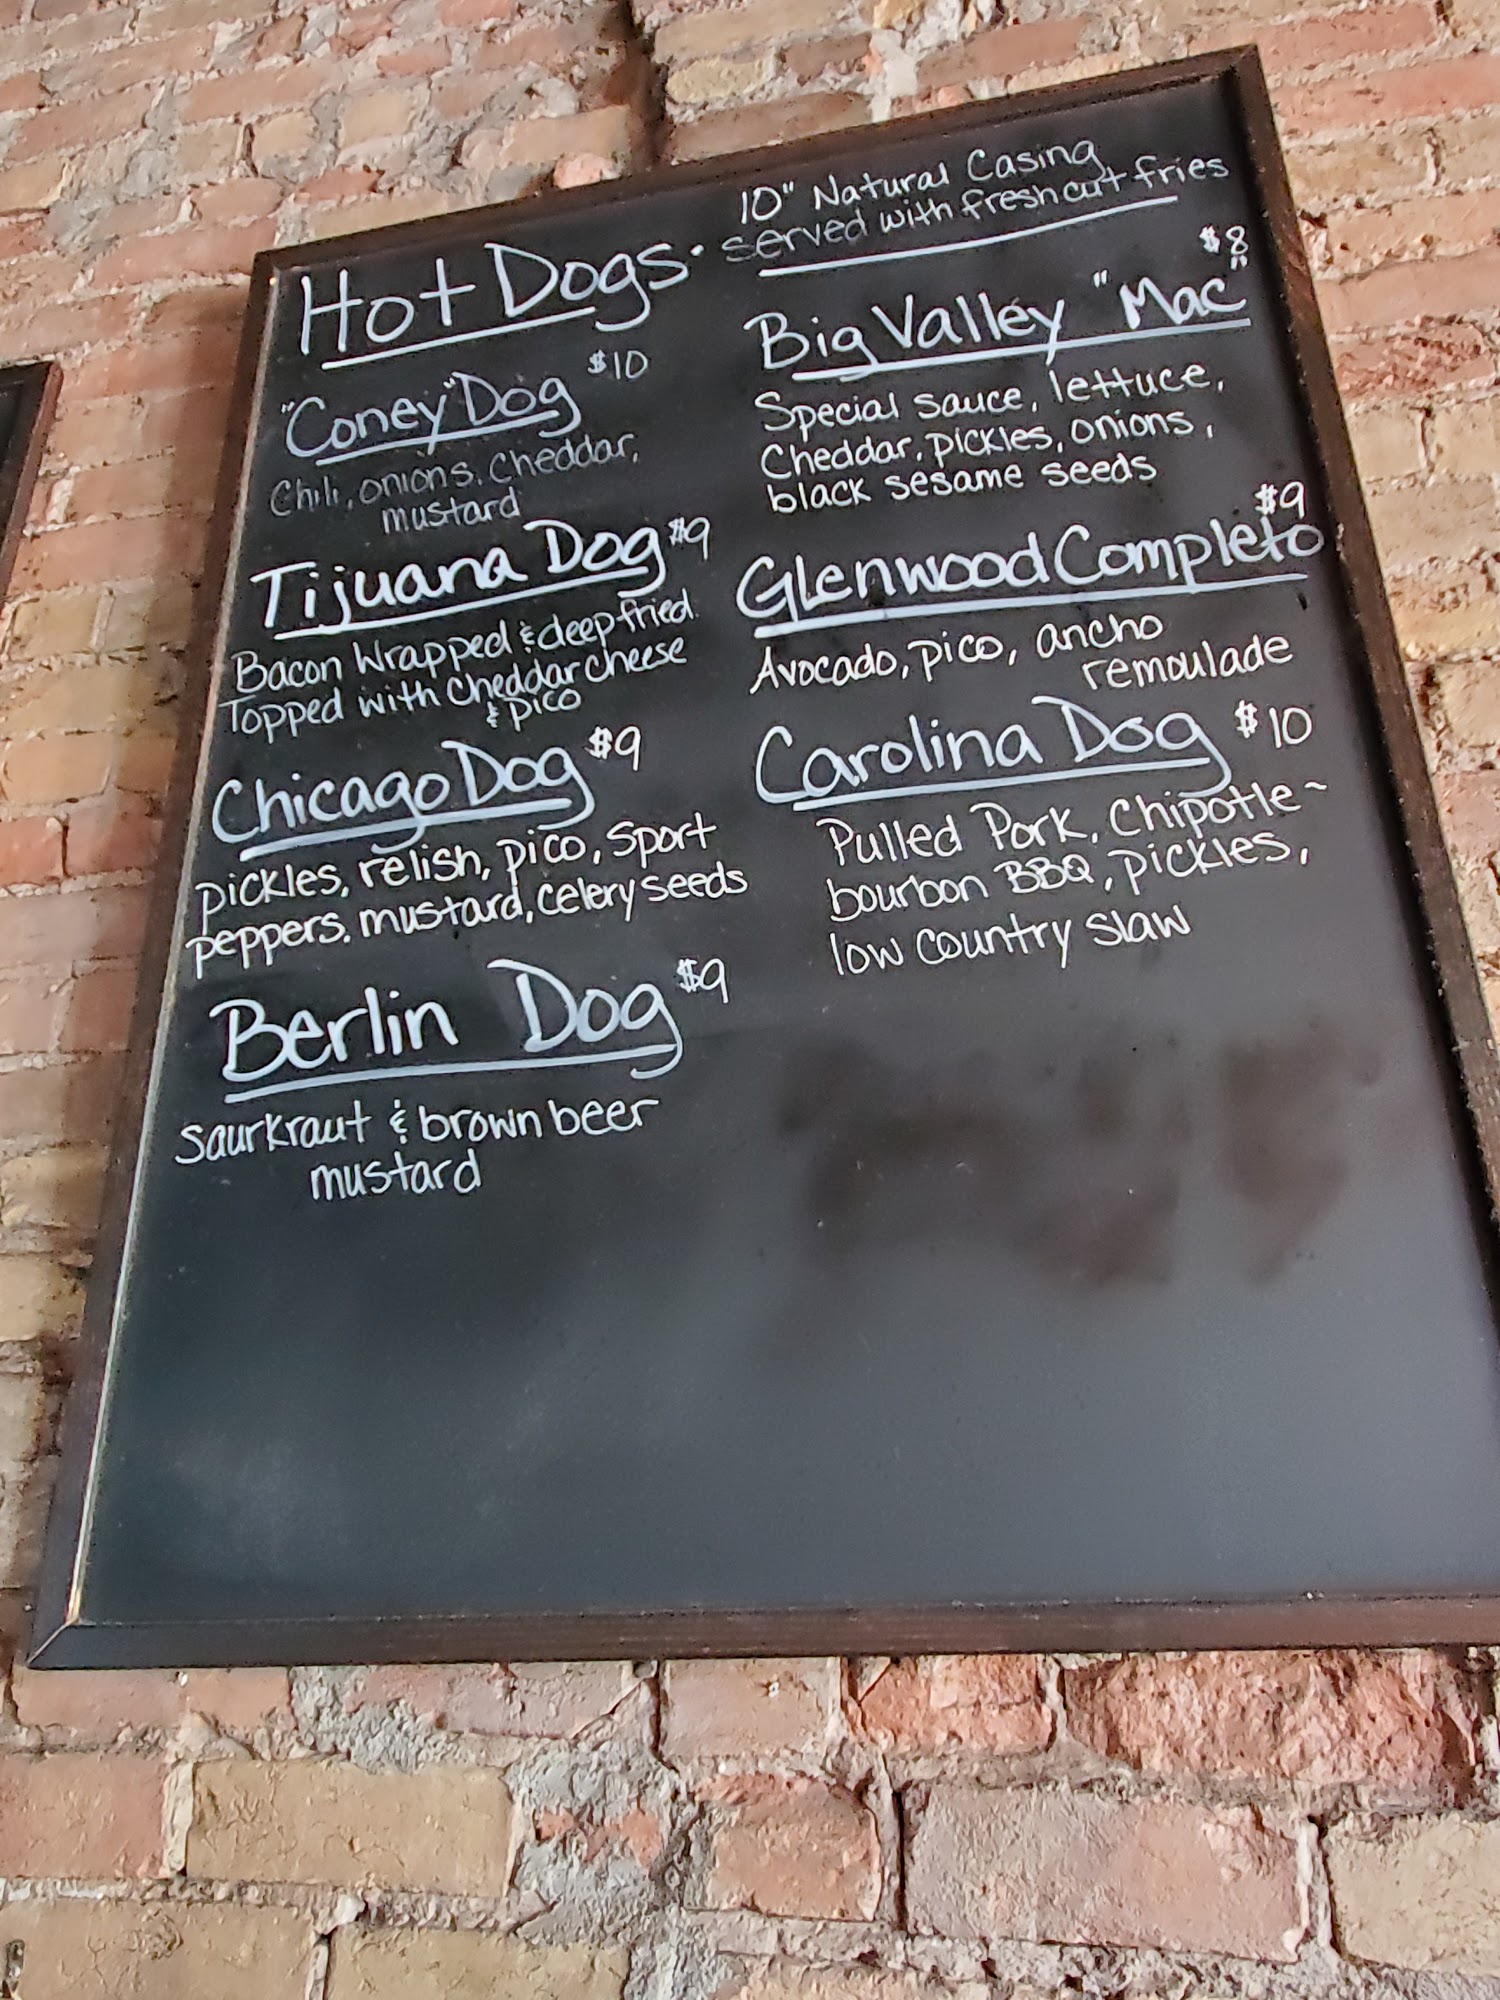 Hot Dogs.
10" Natural Casing
served with fresh cut fries
"Coney" Dog $10
Chili, onions, cheddar,
mustard
Tijuana Dog $9
Bacon Wrapped & deep fried.
Topped with cheddar cheese
& pico
Chicago Dog $9
pickles, relish, pico, sport
peppers, mustard, celery seeds
Berlin Dog $9
saurkraut & brown beer
mustard
$8
Big Valley "Mac"
Special sauce, lettuce,
cheddar, pickles, onions,
black sesame seeds
$9
Glenwood Completo
Avocado, pico, ancho
remoulade
Carolina Dog $10
Pulled Pork, Chipotle-
bourbon BBQ, pickles,
low country slaw